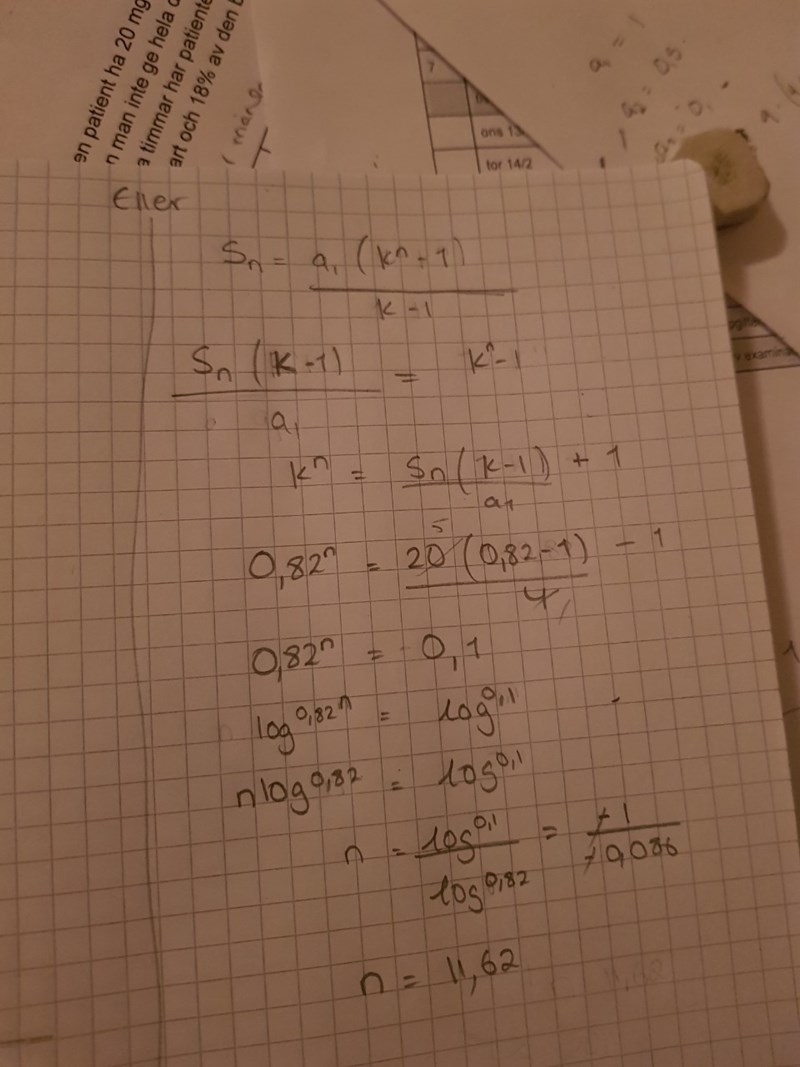 en patient ha 20 mg
n man inte ge hela
a timmar har patient
art och 18% av den
7
ons 13
tor 14/2
examina
Eller
Sₙ = a₁ (kⁿ - 1) / k - 1
Sₙ (k - 1) / a₁ = kⁿ - 1
kⁿ = Sₙ (k - 1) / a₁ + 1
0,82ⁿ = 20 5 (0,82 - 1) / 4 - 1
0,82ⁿ = 0,1
log 0,82ⁿ = log 0,1
n log 0,82 = log 0,1
n = log 0,1 / log 0,82 = -1 / -0,086
n = 11,62